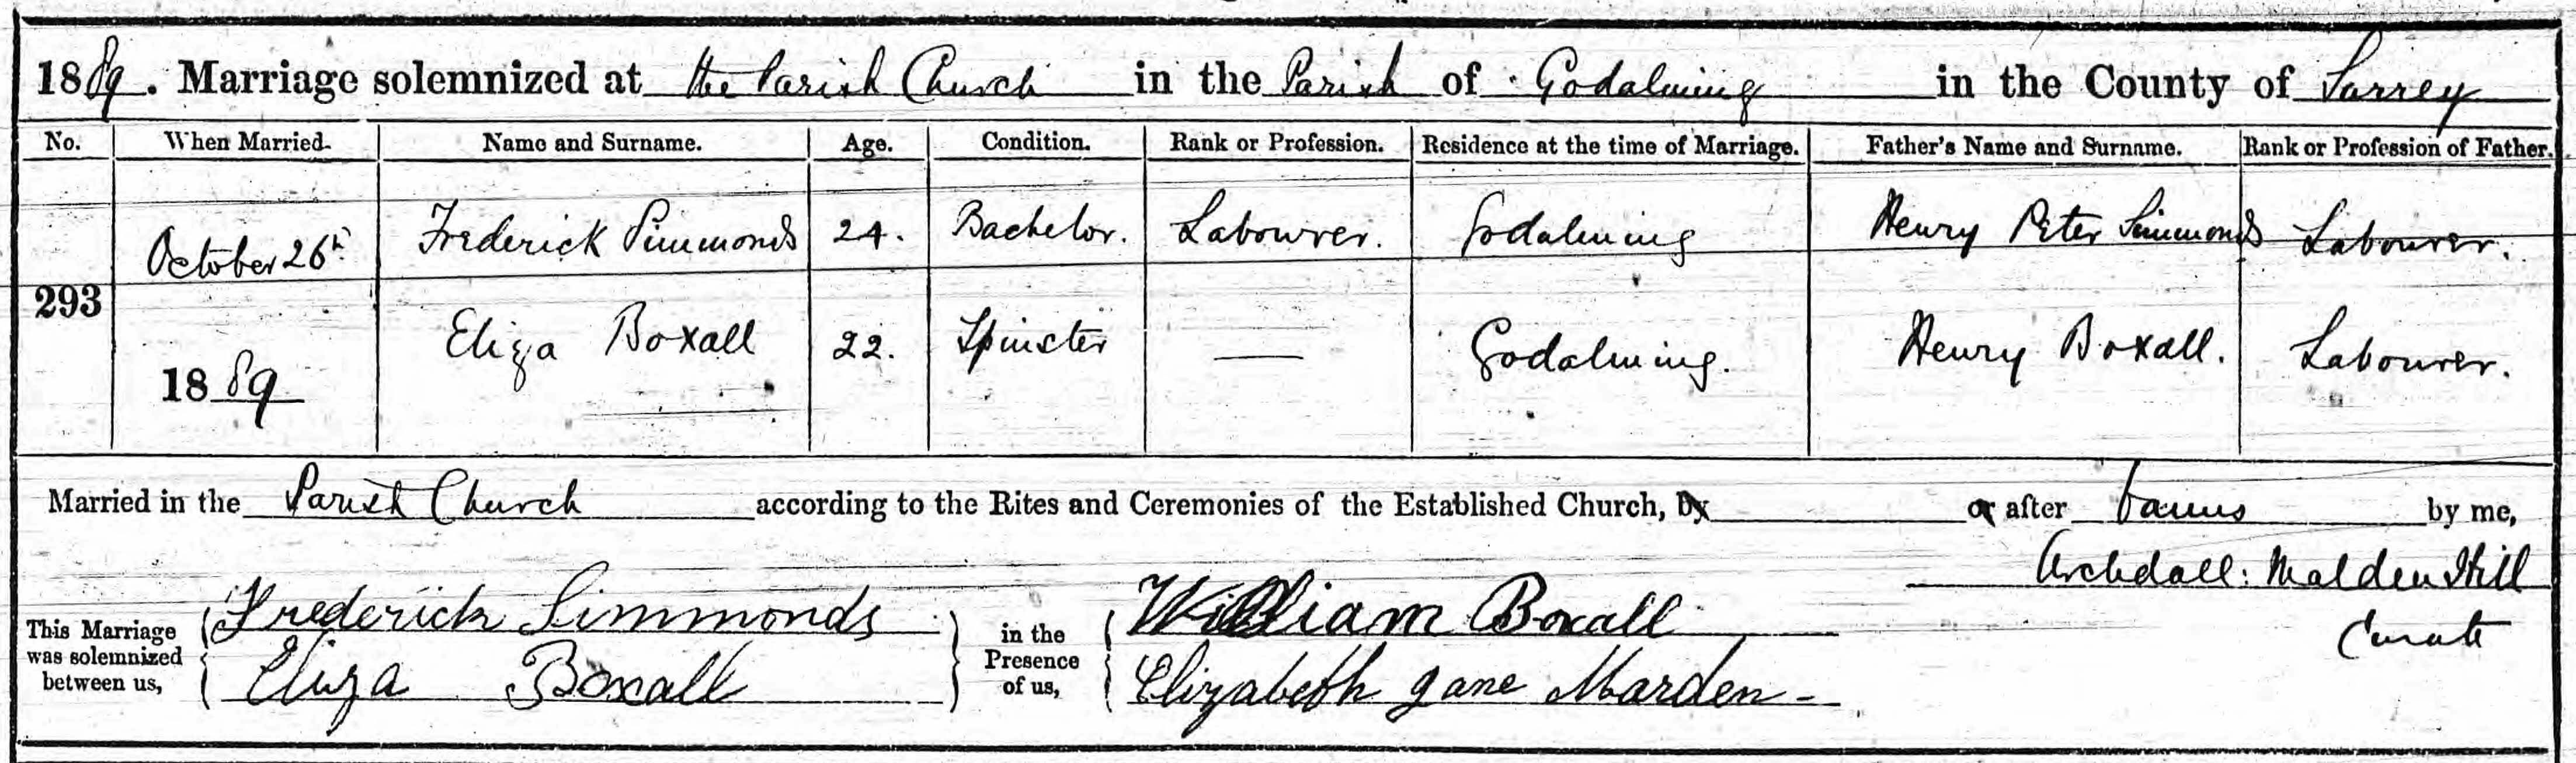 1889. Marriage solemnized at the Parish Church in the Parish of Godalming in the County of Surrey
No. When Married. Name and Surname. Age. Condition. Rank or Profession. Residence at the time of Marriage. Father's Name and Surname. Rank or Profession of Father.
October 26th Frederick Simmonds 24. Bachelor. Labourer. Godalming Henry Peter Simmonds Labourer.
293
1889 Eliza Boxall 22. Spinster — Godalming. Henry Boxall. Labourer.
Married in the Parish Church according to the Rites and Ceremonies of the Established Church, by or after banns by me,
Archdall: Malden Hill
Curate
This Marriage was solemnized between us, Frederick Simmonds in the Presence of us, William Boxall
Eliza Boxall Elizabeth Jane Marden -